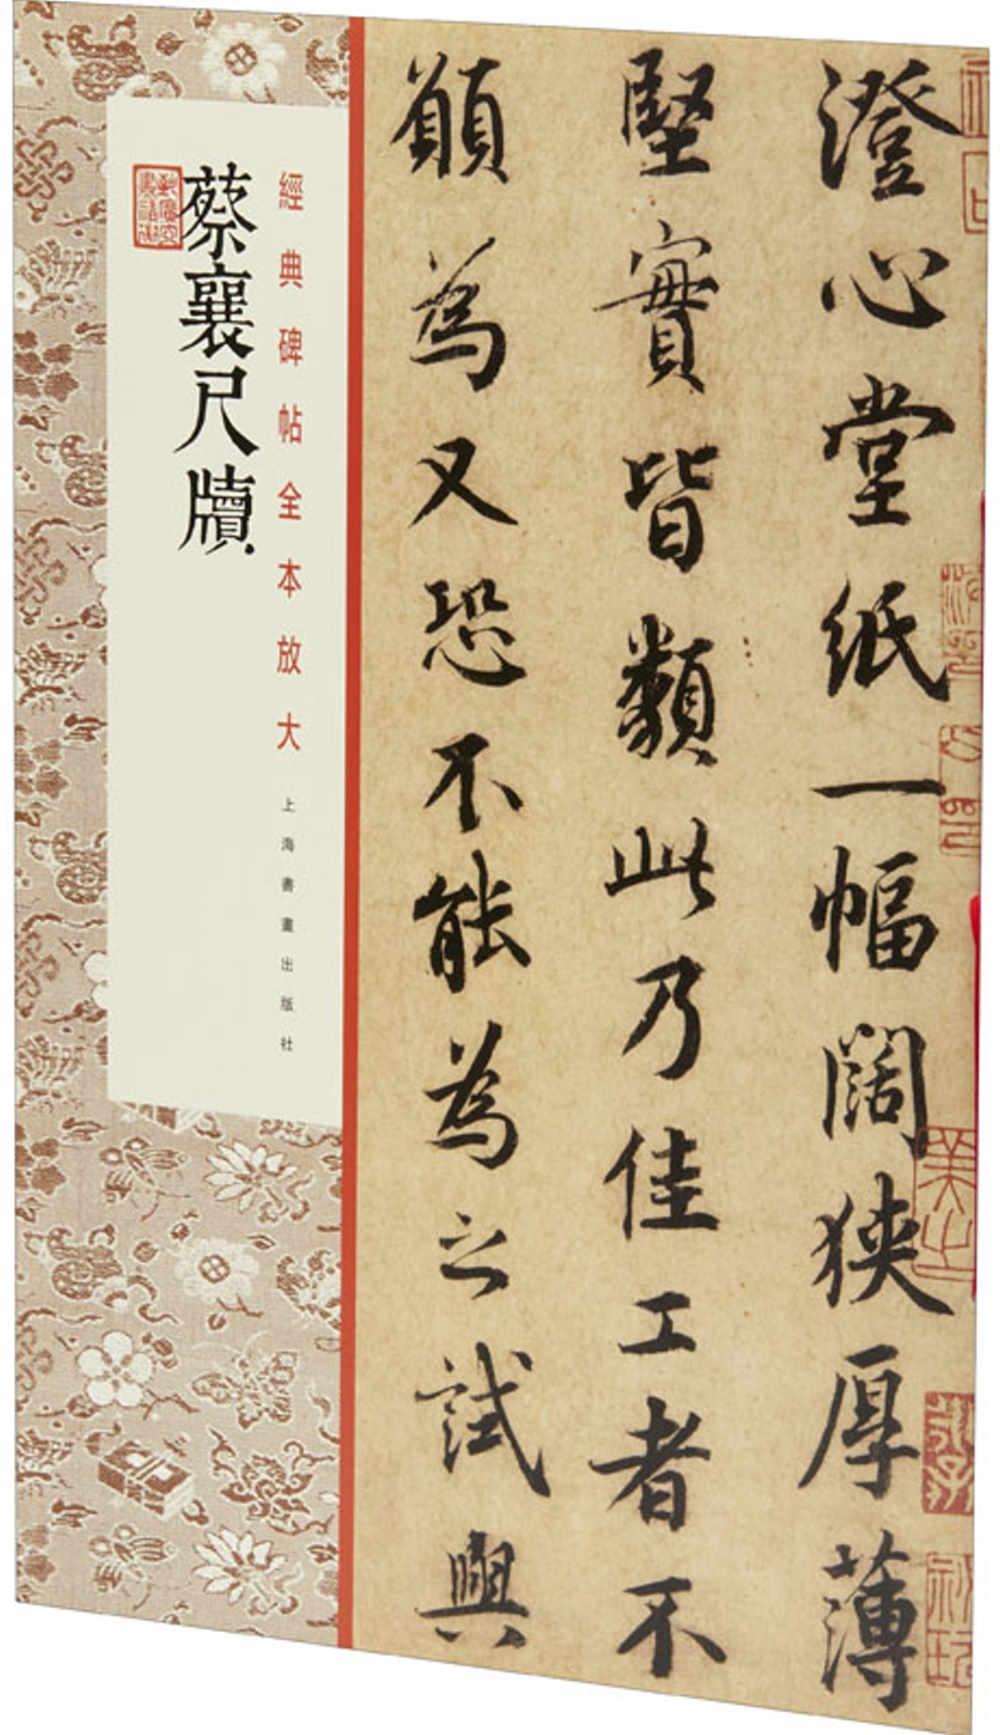 澄心堂紙一幅闊狹厚薄
堅實皆類此乃佳工者不
願為又恐不能為之試與
經典碑帖全本放大
上海書畫出版社
蔡襄尺牘